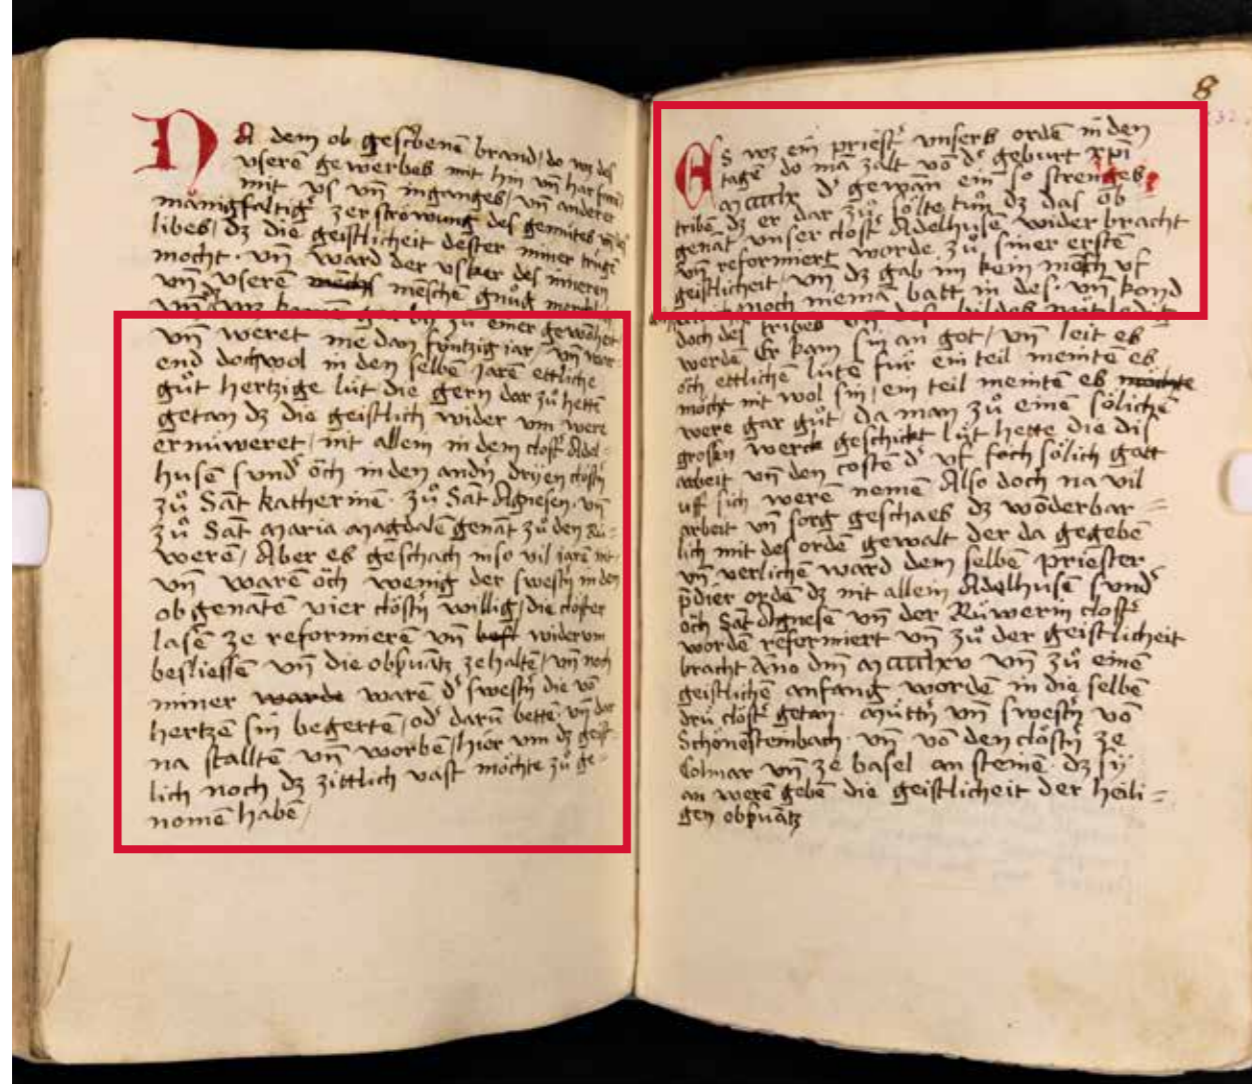 NA dem ob geschͤbenē brand / do wz des
vserē gewerbes mit hin vn̄ har
mit vs vn̄ inganges / vn̄ anderer
mānigfaltigͤ zerströwung des gemütes
libes / dz die geistlicheit dester miner
mocht · vn̄ ward der vsker des ineren
vn̄ vserē menschen gnůg
zů einer gewāheit
vn̄ weret me dan fünfzig iar / vn̄
end doch wol in den selbē jarē ettliche
gůt hertzige lüt die gern dar zů hettē
getan dz die geistlich wider vm were
ernüweret / nit allem in dem clostͤ Adel-
husē sundͤ ŏch in den andn̄ drÿen clöstn̄
zů Sāt katherinē · zů Sāt Agnesen · vn̄
zů Sāt Maria Magdalē genāt zů den Rü-
werē / Aber es geschach in so vil jarē nit
vn̄ warē ŏch wenig der swestn̄ in den
obgenātē vier clöstn̄ willig / die clöster
lasē ze reformierē vn̄ widervm
besliessē vn̄ die obs̄uātz ze haltē / vn̄ noch
miner warē dͤ swestn̄ die vō
hertzē sin begertē / odͤ darū bettē · vn̄ dar
na stalltē vn̄ worbē / hier vm dz geist-
lich noch dz zittlich vast möchte zů ge-
nomē habē /
8
ES wz ein priestͤ vnsers ordē in den
tagē do mā zalt vō dͤ geburt xp̄i
mcccclx dͤ gewan ein so strenges
tribē dz er dar zů sölte tůn dz das ob
genāt vnser clostͤ Adelhusē wider bracht
vn̄ reformiert worde zů siner erstē
geistlicheit / vn̄ dz gab im kein mēsch vf
noch niemā batt in des · vn̄ kond
doch des tribes vn̄ des bildes nüt ledig
werdē Er kam sin an got / vn̄ leit es
ŏch ettlichē lütē für ein teil meintē es
möcht nit wol sin / ein teil meintē es möchte
were gar gůt / da man zů einē sölichē
grossen werck geschickt lüt hette die dis
arbeit vn̄ den costē dͤ vf soch sölich gatt
uff sich werē nemē Also doch na vil
arbeit vn̄ sorg geschach dz wonderbar=
lich mit des ordē gewalt der da gegebē
vn̄ verlichē ward dem selbē priester
p̄dier ordē dz nit allein Adelhusē sundͤ
ŏch Sāt Agnesē vn̄ der Rüwerin clostͤ
wordē reformiert vn̄ zů der geistlicheit
bracht Āno dn̄i mcccclxv vn̄ zů einē
geistlichē anfang wordē in die selbē
drü clöstͤ getan · müttn̄ vn̄ swestn̄ vō
Schönēsteinbach · vn̄ vō den clöstn̄ ze
Colmar vn̄ ze basel an steinē · dz sÿ
an werē gebē die geistlicheit der heili=
gen obs̄uātz